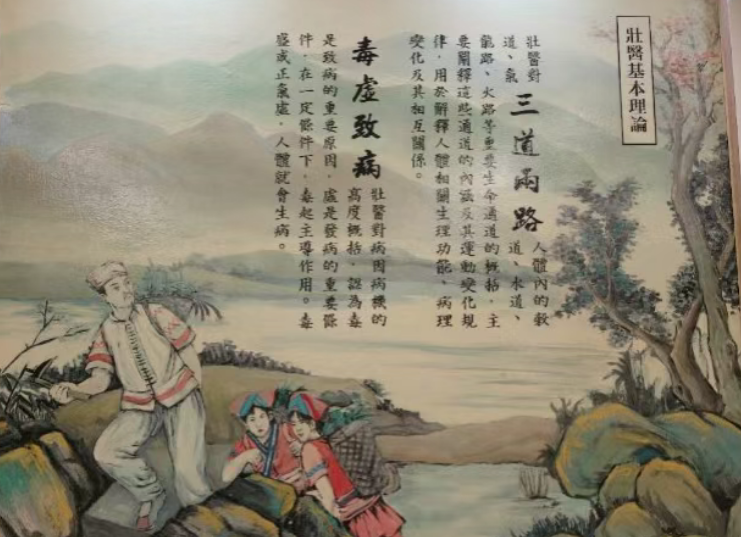 壯醫基本理論
壯醫對
三道兩路
人體內的穀
道、氣
道、水道、
龍路、火路等重要生命通道的概括，主
要闡釋這些通道的內涵及其運動變化規
律，用於解釋人體相關生理功能、病理
變化及其相互關係。
毒虛致病
壯醫對病因病機的
高度概括，認為毒
是致病的重要原因，虛是發病的重要條
件，在一定條件下，毒起主導作用。毒
盛或正氣虛，人體就會生病。